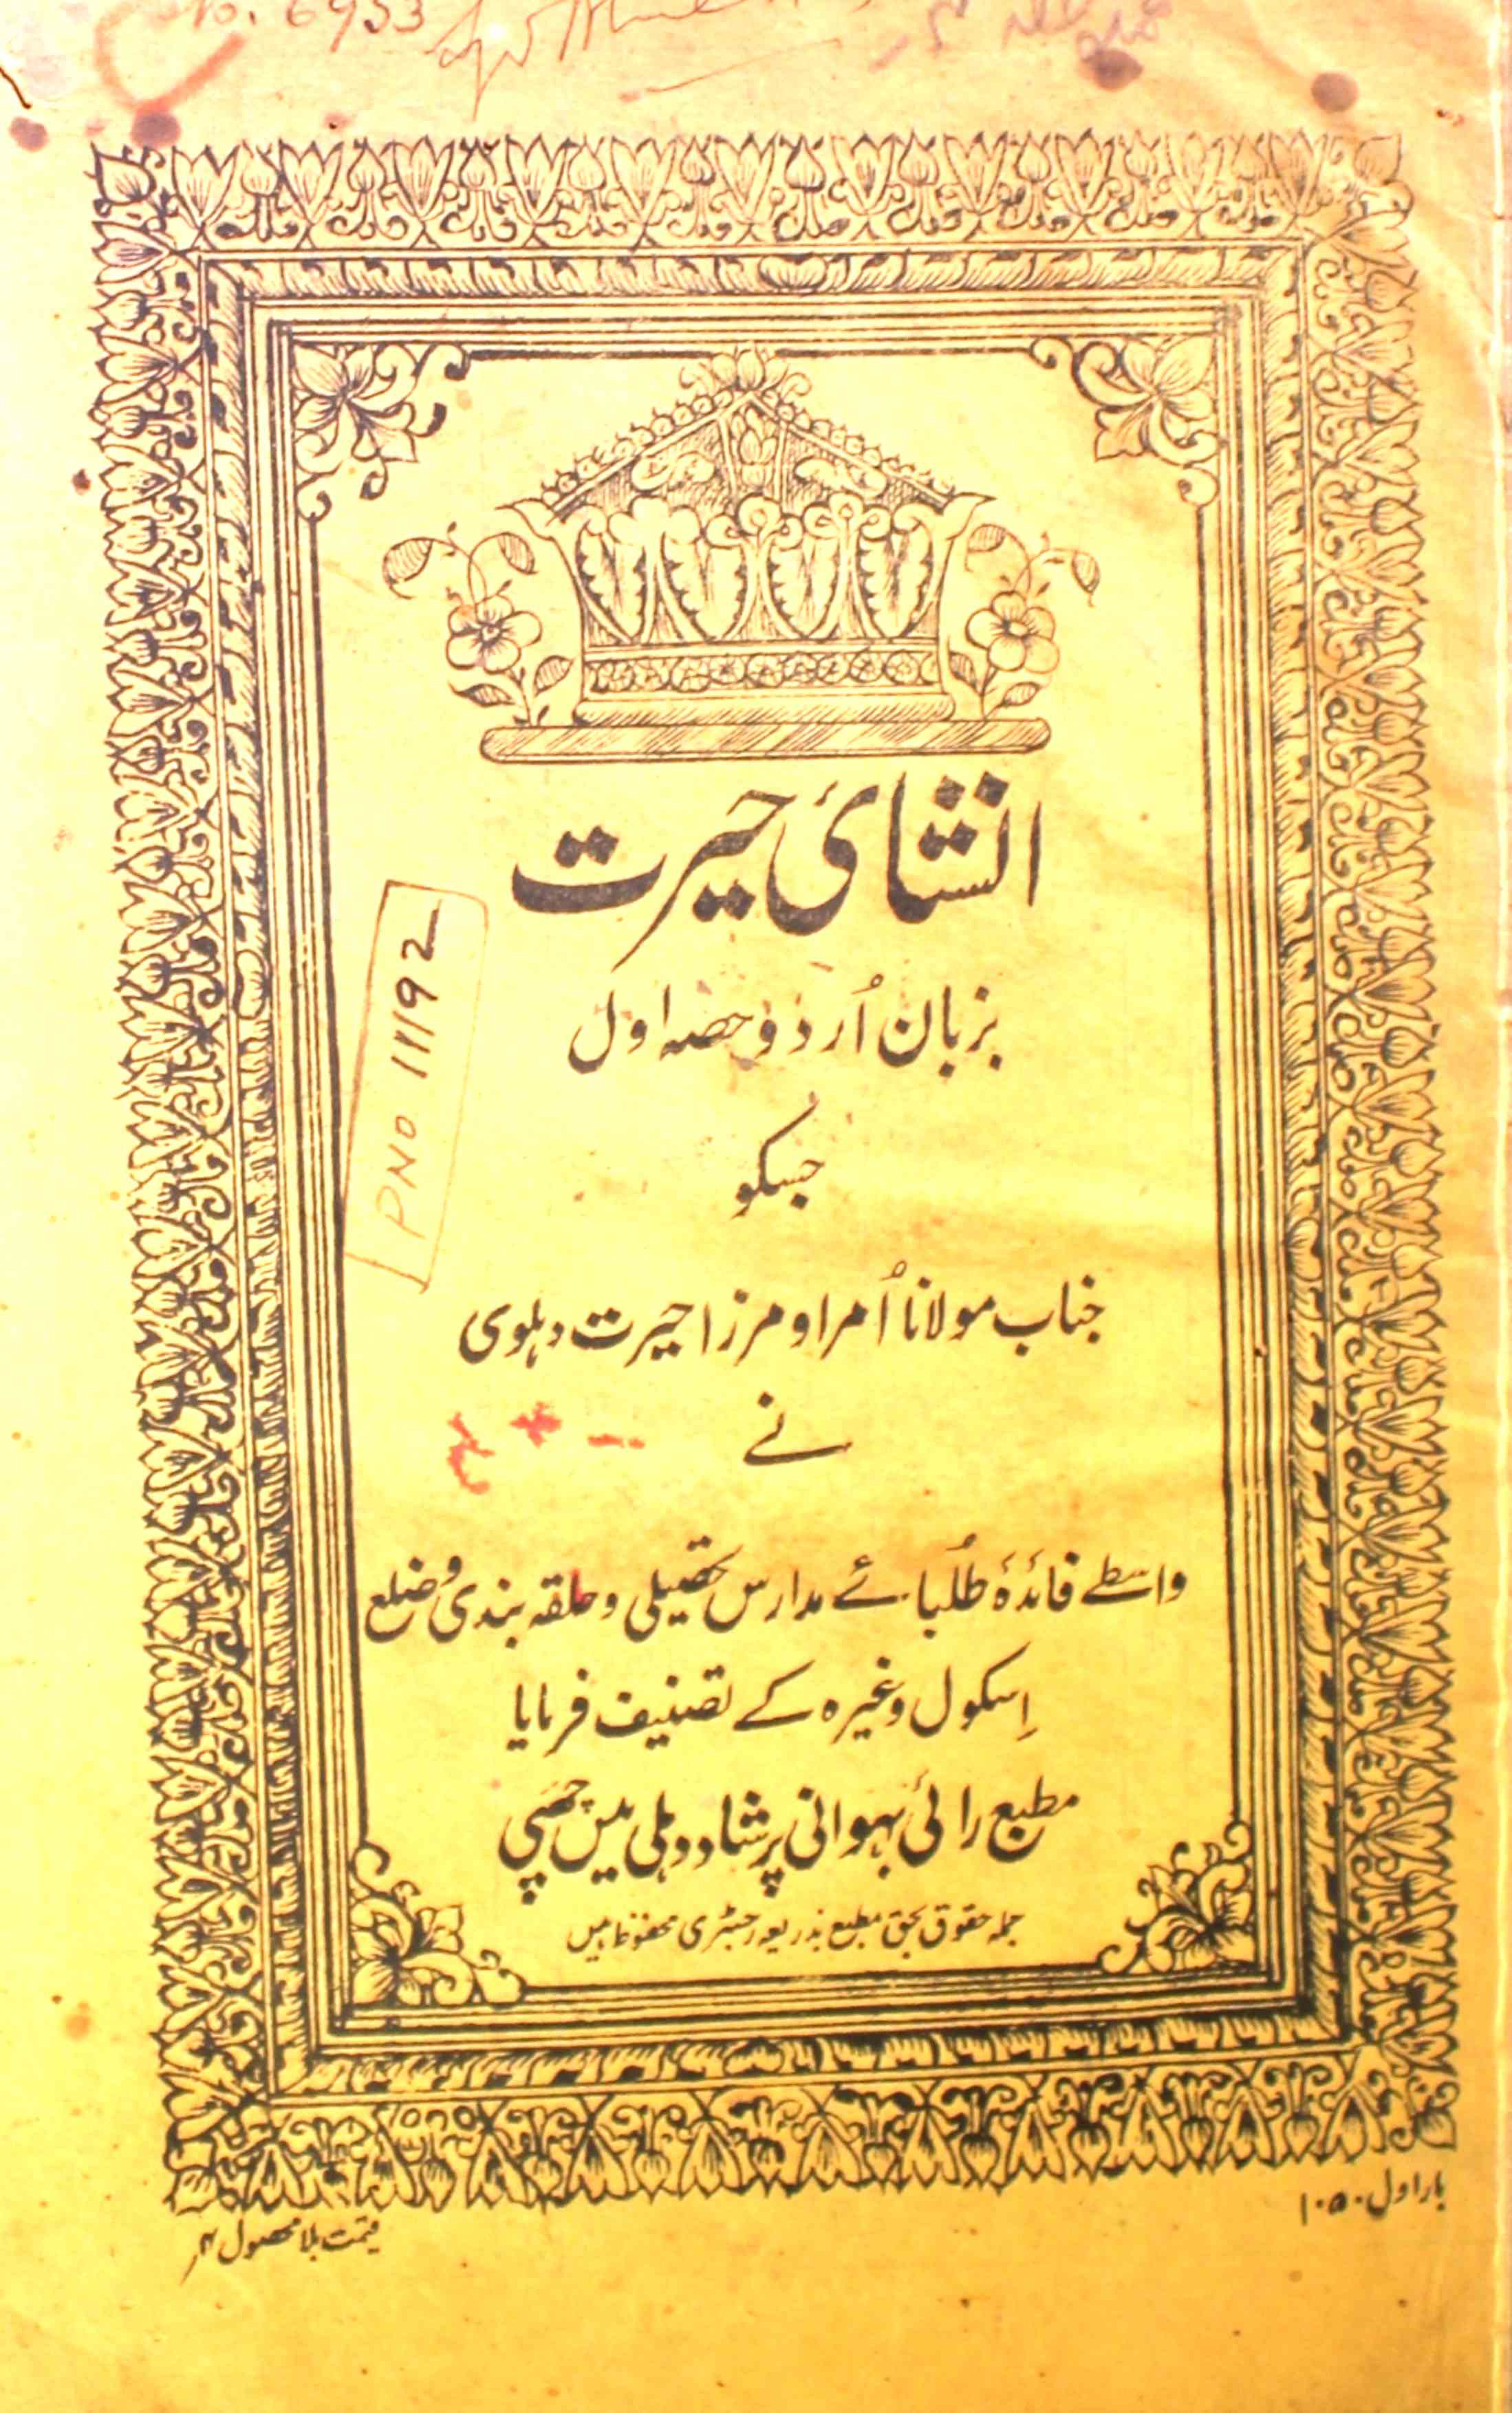 No. 6953
انشائ حیرت
بزبان اُردو حصہ اول
PNO 11192
جسکو
جناب مولانا اُمراو مرزا حیرت دہلوی
نے
واسطے فائدۂ طُلبائے مدارس تحصیلی و حلقہ بندی و ضلع
اِسکول وغیرہ کے تصنیف فرمایا
مطبع رائی بہوانی پرشاد دہلی میں چھپی
جملہ حقوق بحق مطبع بذریعہ رجسٹری محفوظ ہیں
بار اول ۱۰۵۰
قیمت بلا محصول ۴؍